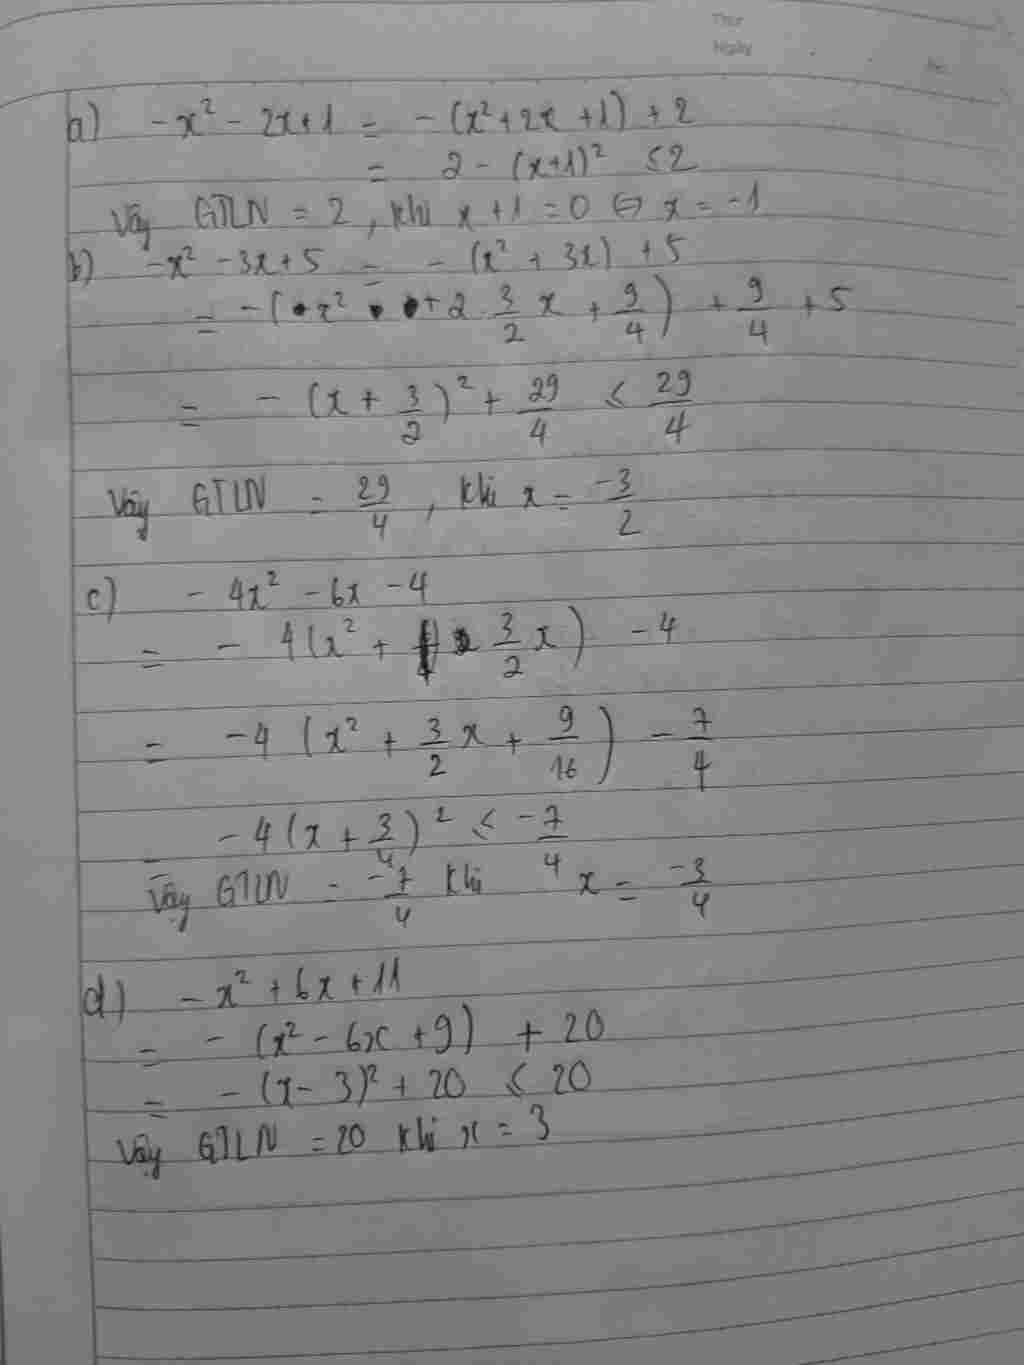 Thứ
Ngày
a) -x² - 2x+1 = -(x²+2x+1) + 2
= 2 - (x+1)² ≤ 2
Vậy GTLN = 2, khi x + 1 = 0 ⇔ x = -1
b) -x² - 3x + 5 = - (x² + 3x) + 5
= -(x² + 2 . 3/2 x + 9/4) + 9/4 + 5
= - (x + 3/2)² + 29/4 ≤ 29/4
Vậy GTLN = 29/4, khi x = -3/2
c) - 4x² - 6x - 4
= - 4(x² + 3/2 x) - 4
= -4 (x² + 3/2 x + 9/16) - 7/4
= -4(x + 3/4)² ≤ -7/4
Vậy GTLN = -7/4 khi x = -3/4
d) - x² + 6x + 11
= - (x² - 6x + 9) + 20
= - (x - 3)² + 20 ≤ 20
Vậy GTLN = 20 khi x = 3